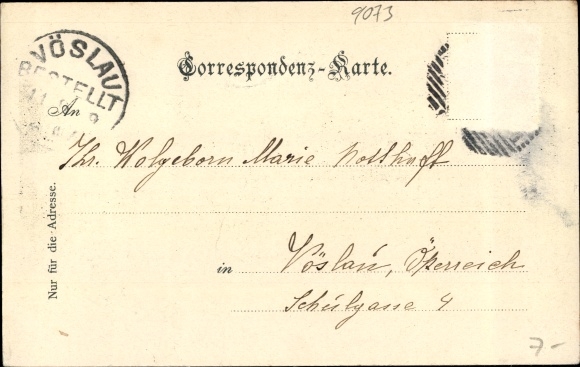 9073
VÖSLAU
BESTELLT
Correspondenz-Karte.
An
Ihr. Wolgeborn Marie Notthaft
Nur für die Adresse.
in Vöslau, Österreich
Schulgasse 4
7-